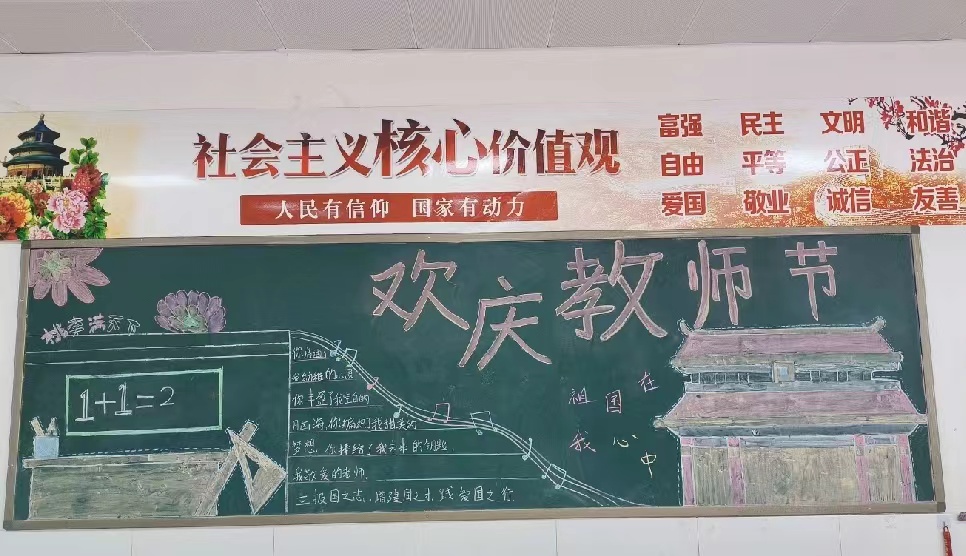 社会主义核心价值观
人民有信仰 国家有动力
富强 民主 文明 和谐
自由 平等 公正 法治
爱国 敬业 诚信 友善
欢庆教师节
桃李满天下
1+1=2
祖国在
我心中
你
你丰盈了我空白的
梦想,你
我敬爱的老师
国之志,